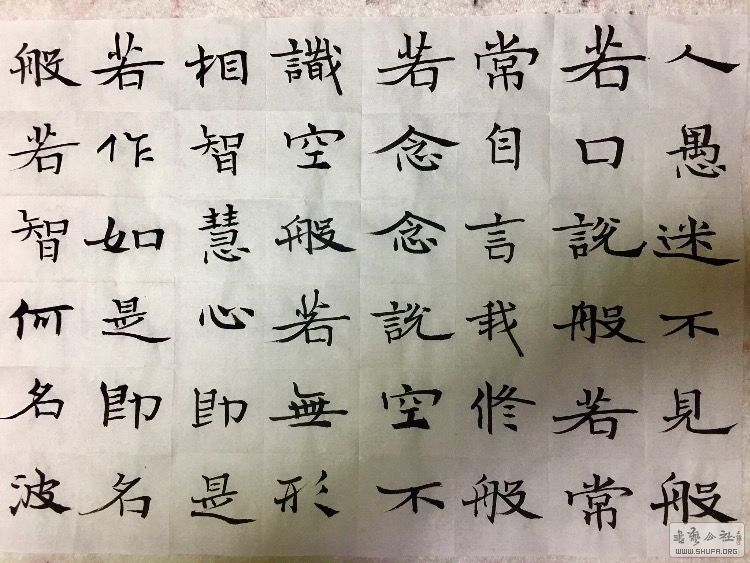 人愚迷不見般
若口說般若常
常自言我修般
若念念說空不
識空般若無形
相智慧心即是
若作如是即名
般若智何名波
WWW.SHUFA.ORG